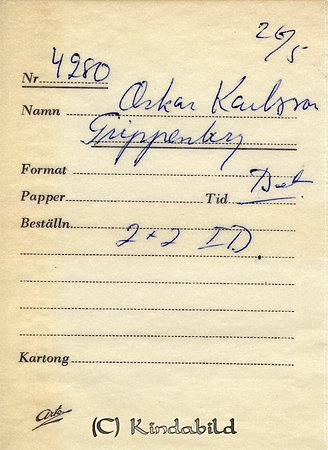 26/5
Nr 4280
Namn Oskar Karlsson
Grippenberg
Format
Papper Tid
Beställn. 2+2 ID.
Kartong
Ark
(C) Kindabild